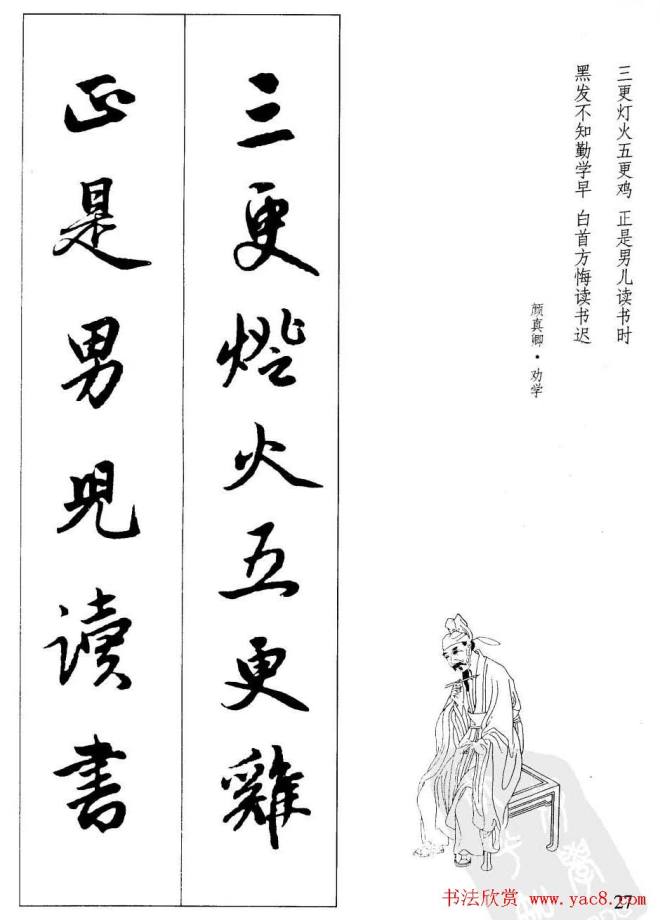 三更灯火五更鸡 正是男儿读书时
黑发不知勤学早 白首方悔读书迟
颜真卿·劝学
三更燈火五更雞
正是男兒讀書
27
书法欣赏 www.yac8.com